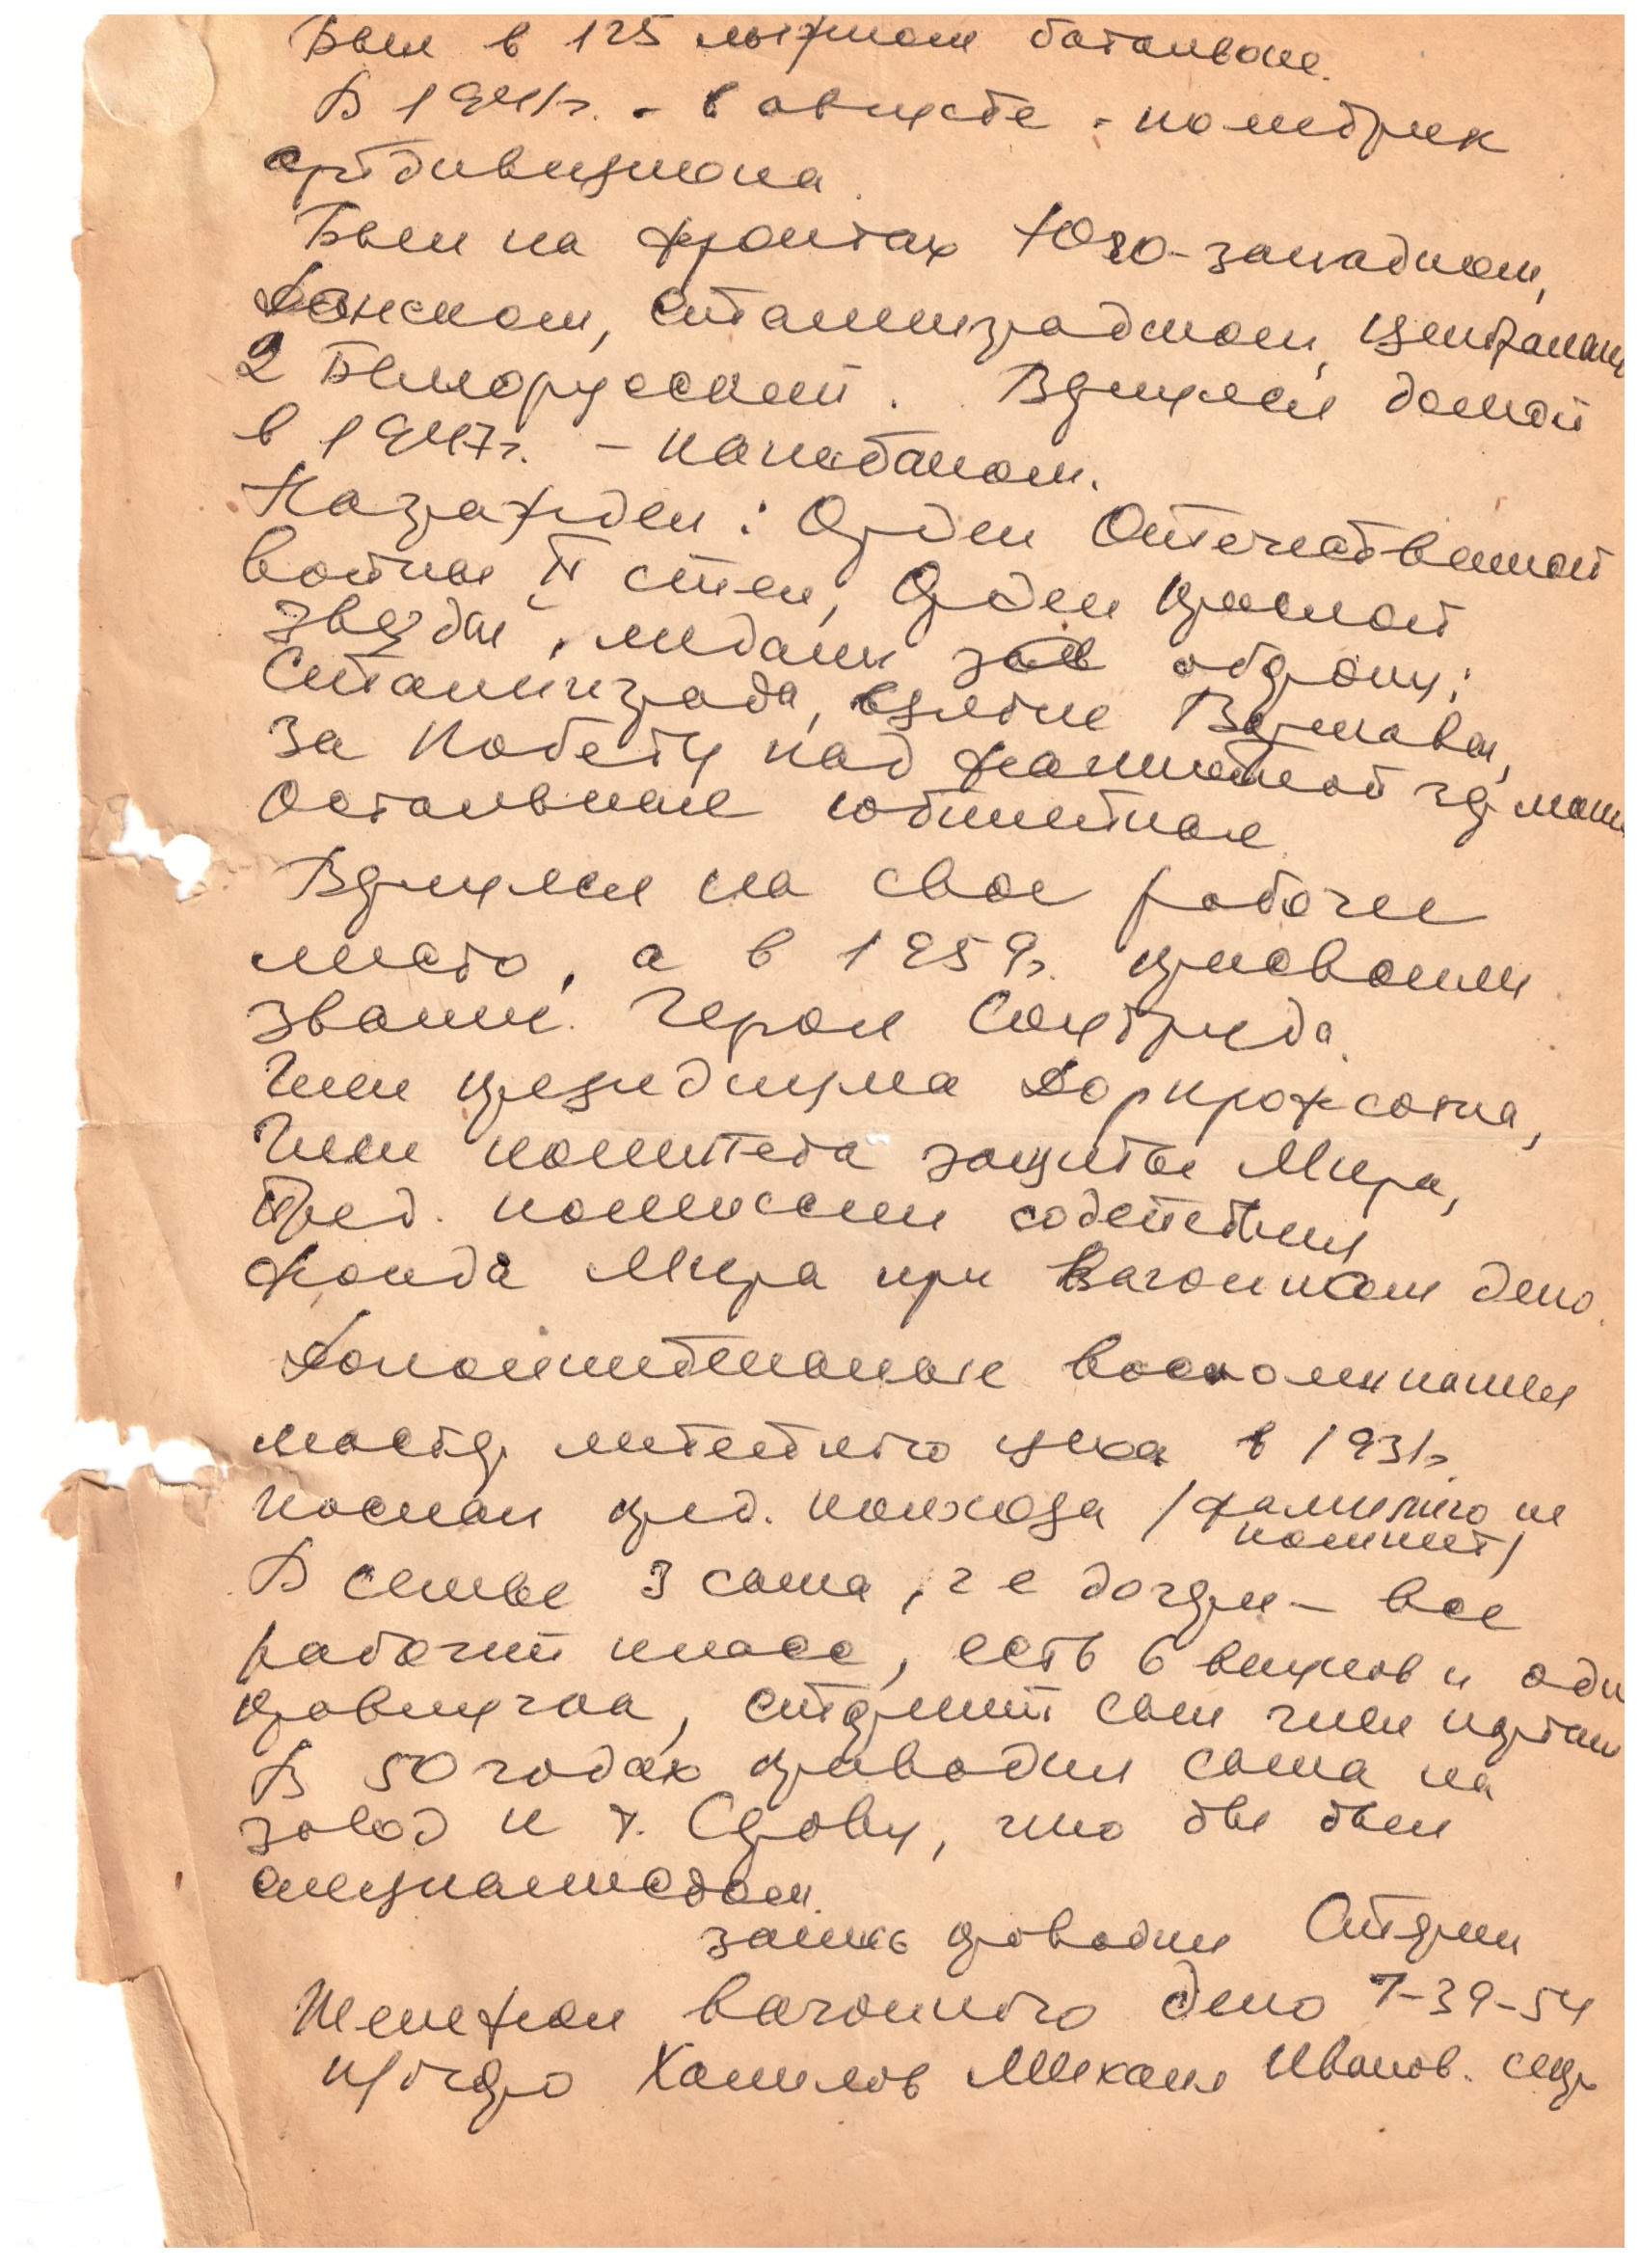 Был в 125 лыжном батальоне.
В 1941г. - в августе - политрук
артдивизиона.
Был на фронтах Юго-западном,
Донском, Сталинградском, Централь
2 Белорусский. Вернулся домой
в 1947г. - капитаном.
Награжден: Орден Отечественной
войны II степ, Орден Красной
звезды, медали за оборону:
Сталинграда, взятие Варшавы,
за Победу над фашисткой герман
остальные юбилейные.
Вернулся на свое рабочее
место, а в 1959г. присвоили
звание Героя Соцтруда.
Член президиума Дорпрофсожа,
Член комитета защиты Мира,
Пред. комиссии содействия
фонда Мира при Вагонном депо.
Дополнительные воспоминания
мастер литейного цеха в 1931г.
послан пред. колхоза /фамилию не
помнит/
В семье 3 сына, 2 е дочери - все
рабочий класс, есть 6 внуков и оди
правнучка, старший сын член партии
В 50 годах приводил сына на
завод к т. Серову, что бы был
специалистом.
запись проводил
Телефон вагонного депо 7-39-54
п/бюро Хамилов Михаил Иванов. секр